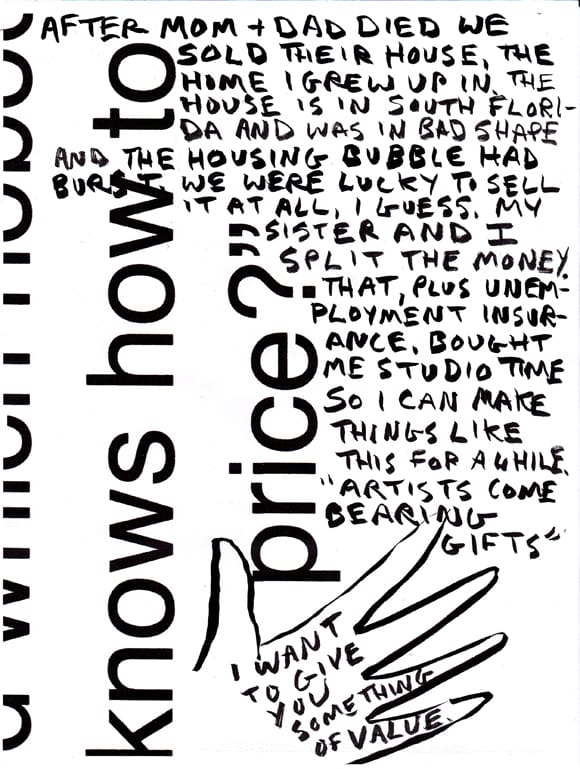 AFTER MOM + DAD DIED WE
SOLD THEIR HOUSE, THE
HOME I GREW UP IN. THE
HOUSE IS IN SOUTH FLORI-
DA AND WAS IN BAD SHAPE
AND THE HOUSING BUBBLE HAD
BURST. WE WERE LUCKY TO SELL
IT AT ALL, I GUESS. MY
SISTER AND I
SPLIT THE MONEY.
THAT, PLUS UNEM-
PLOYMENT INSUR-
ANCE, BOUGHT
ME STUDIO TIME
SO I CAN MAKE
THINGS LIKE
THIS FOR AWHILE.
"ARTISTS COME
BEARING
GIFTS"
I WANT
TO GIVE
YOU
SOMETHING
OF VALUE.
knows how to
price?"